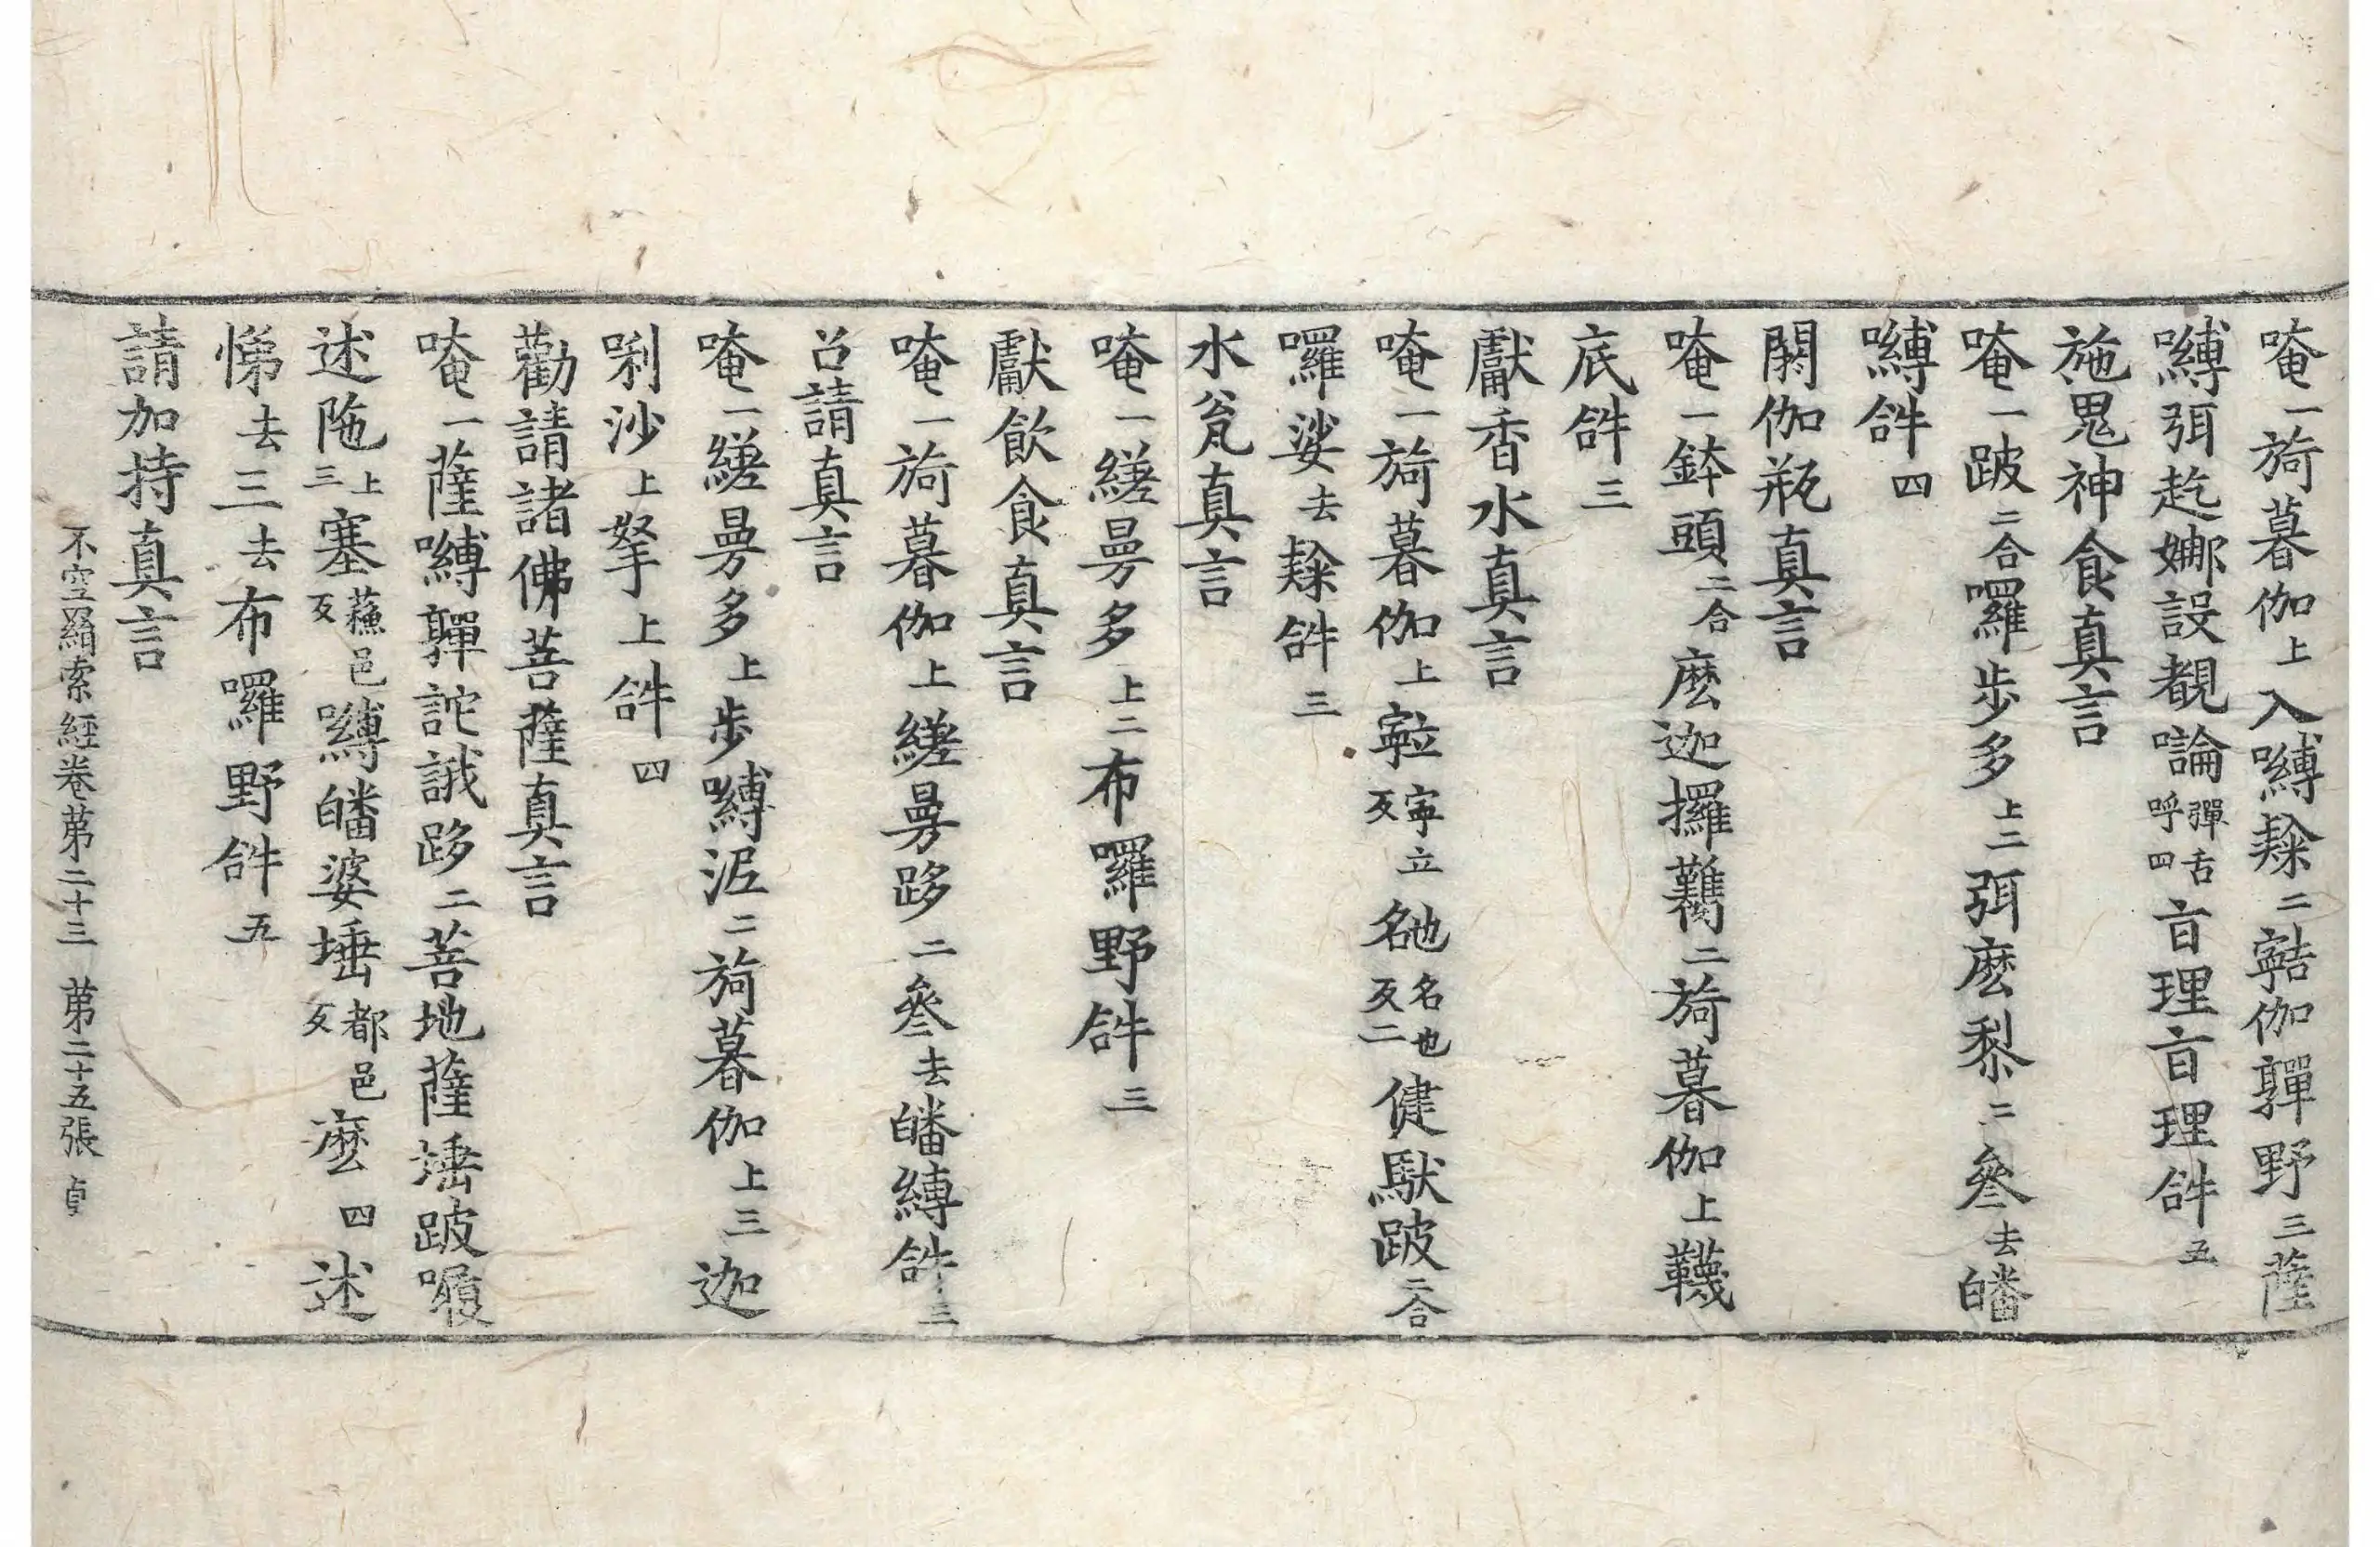 唵一旖暮伽上入嚩𨽻二𡫸伽韗野三薩
嚩弭趂娜設覩㘕彈舌呼四盲理盲理𤙖五
施鬼神食真言
唵一跛二合囉步多上二弭麽黎二叅去皤
嚩𤙖四
閼伽瓶真言
唵一鉢頭二合麽迦攞二旖暮伽上韈
底𤙖三
獻香水真言
唵一旖暮伽上寧立反名也名也反二健馱跛二合
囉娑去𨽻𤙖三
水瓮真言
唵一縒曼多上二布囉野𤙖三
獻飲食真言
唵一旖暮伽上縒曼跢二叅去皤縛𤙖三
召請真言
唵一縒曼多上步嚩泥二旖暮伽上三迦
唎沙上拏上𤙖四
勸請諸佛菩薩真言
唵一薩嚩韗詑誐跢二菩地薩埵跛㘑
述陁上三塞蘓邑反嚩皤婆埵都邑反麽四述
悌去三去布囉野𤙖五
請加持真言
不空羂索經卷第二十三 第二十五張 貞